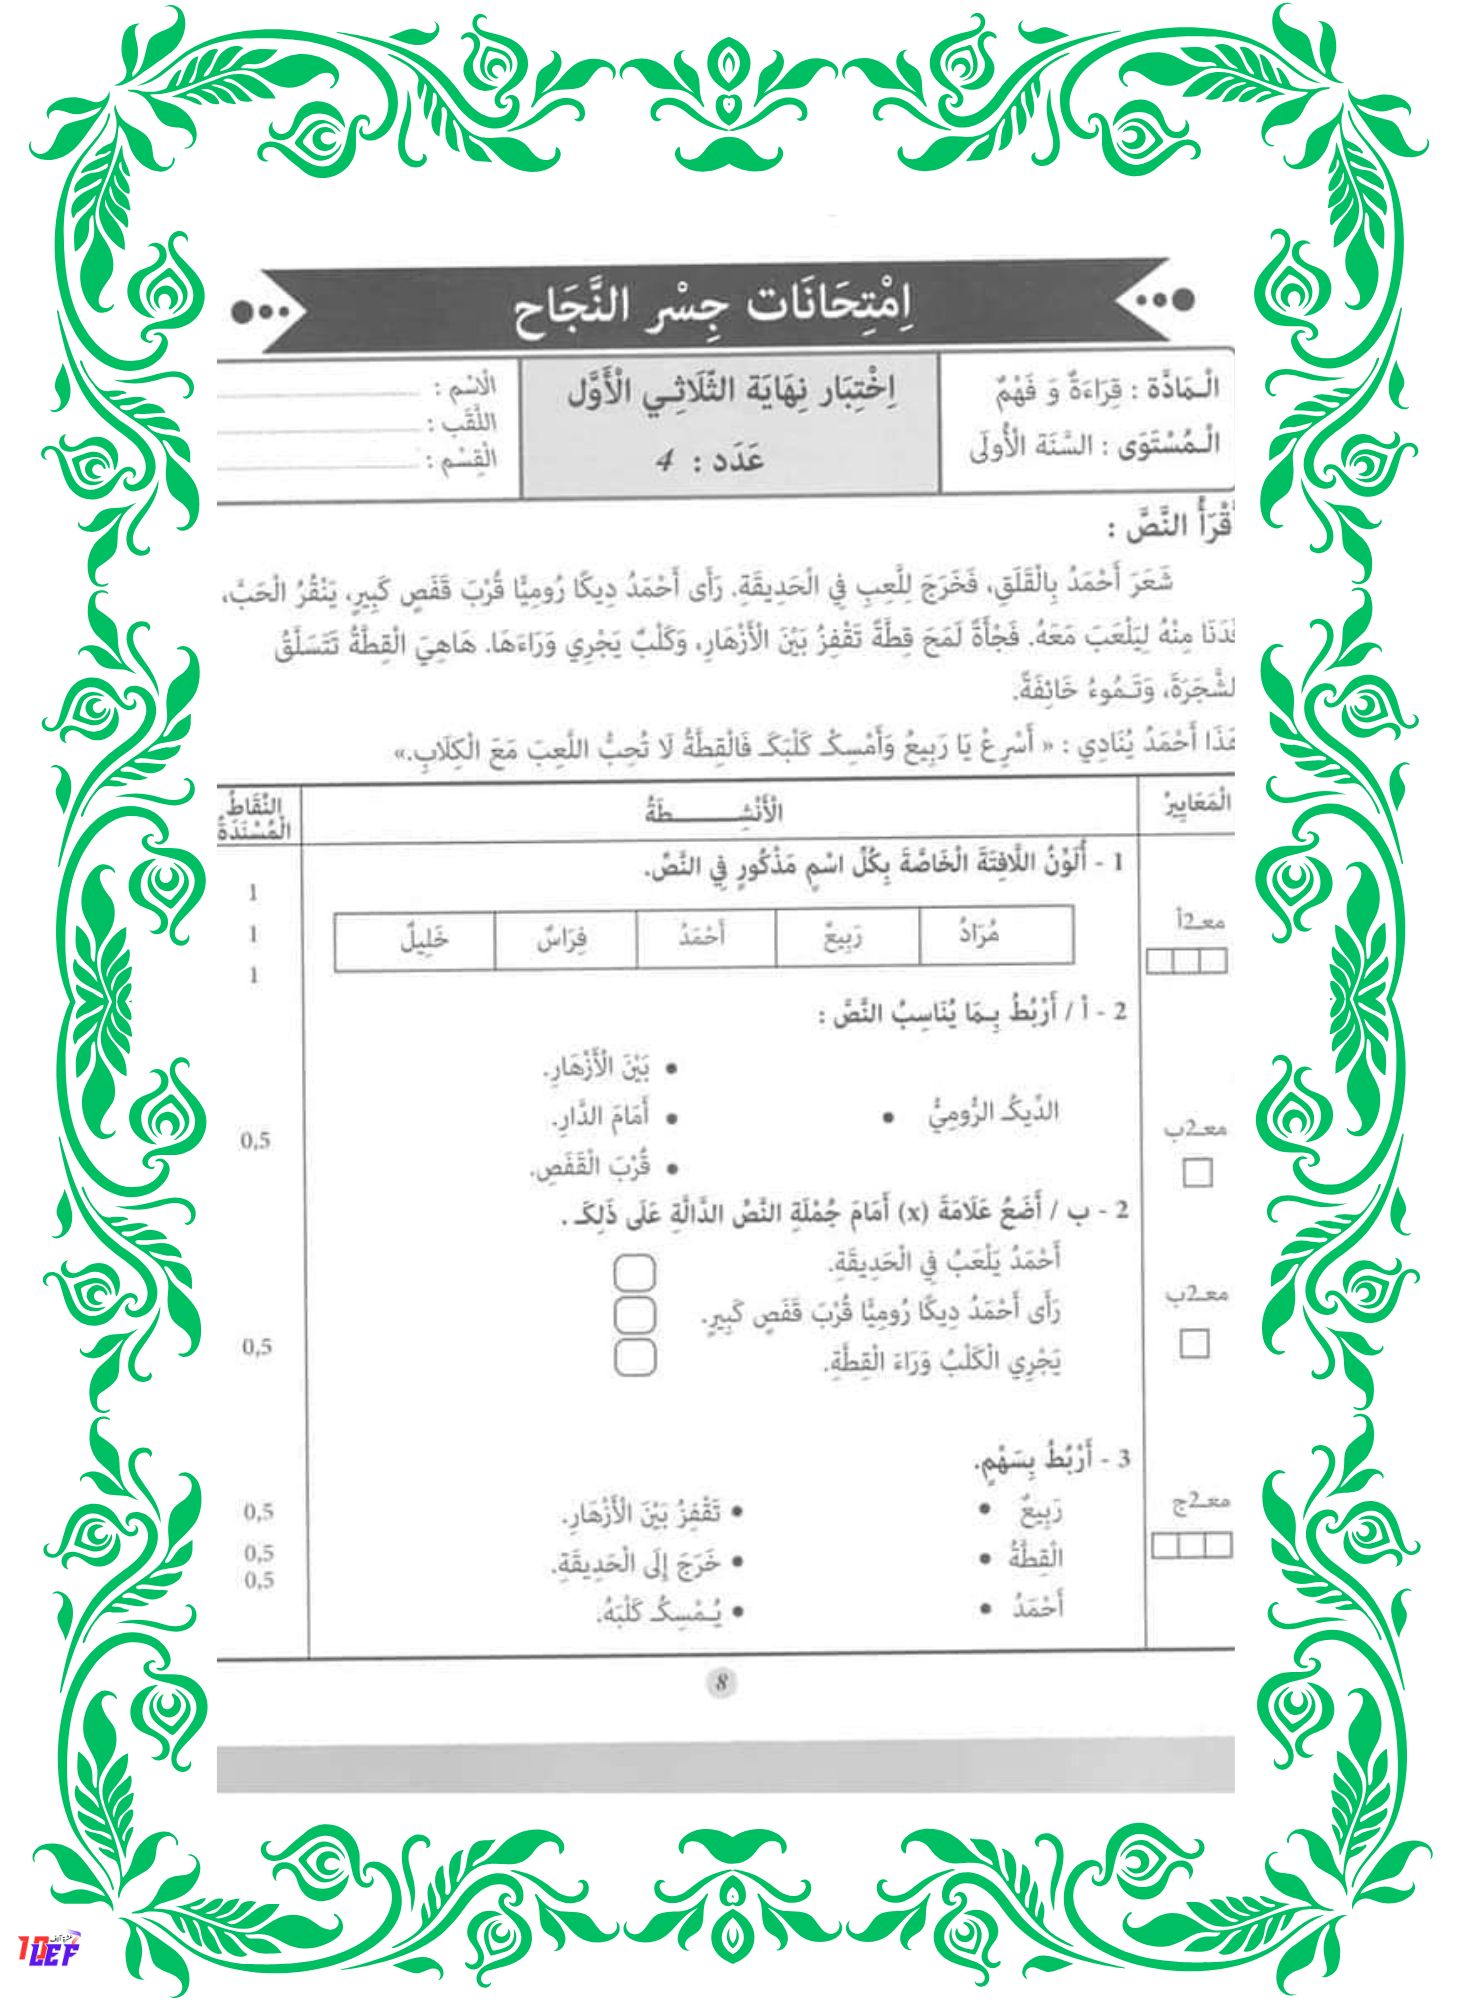 اِمْتِحَانَات جِسْر النَّجَاح
الْـمَادَّة : قِرَاءَةٌ وَ فَهْمٌ
الْـمُسْتَوَى : السَّنَة الْأُولَى
اِخْتِبَار نِهَايَة الثّلَاثِـي الْأَوَّل
عَدَد : 4
الْاسْم :
اللَّقَب :
الْقِسْم :
أَقْرَأُ النَّصَّ :
شَعَرَ أَحْمَدُ بِالْقَلَقِ، فَخَرَجَ لِلَّعِبِ فِي الْحَدِيقَةِ. رَأَى أَحْمَدُ دِيكًا رُومِيًّا قُرْبَ قَفَصٍ كَبِيرٍ، يَنْقُرُ الْحَبَّ،
فَدَنَا مِنْهُ لِيَلْعَبَ مَعَهُ. فَجْأَةً لَمَحَ قِطَّةً تَقْفِزُ بَيْنَ الْأَزْهَارِ، وَكَلْبٌ يَجْرِي وَرَاءَهَا. هَاهِيَ الْقِطَّةُ تَتَسَلَّقُ
الشَّجَرَةَ، وَتَـمُوءُ خَائِفَةً.
هَذَا أَحْمَدُ يُنَادِي : « أَسْرِعْ يَا رَبِيعُ وَأَمْسِكْ كَلْبَكَ فَالْقِطَّةُ لَا تُحِبُّ اللَّعِبَ مَعَ الْكِلَابِ.»
الْمَعَايِيرُ
الْأَنْشِـــــــــطَةُ
النِّقَاطُ
الْمُسْنَدَةُ
1 - أُلَوِّنُ اللَّافِتَةَ الْخَاصَّةَ بِكُلِّ اسْمٍ مَذْكُورٍ فِي النَّصِّ.
معـ2أ
1
1
1
مُرَادُ
رَبِيعٌ
أَحْمَدُ
فِرَاسٌ
خَلِيلٌ
2 - أ / أَرْبُطُ بِـمَا يُنَاسِبُ النَّصَّ :
• بَيْنَ الْأَزْهَارِ.
الدِّيكُ الرُّومِيُّ •
• أَمَامَ الدَّارِ.
• قُرْبَ الْقَفَصِ.
معـ2ب
0,5
2 - ب / أَضَعُ عَلَامَةَ (x) أَمَامَ جُمْلَةِ النَّصِّ الدَّالَّةِ عَلَى ذَلِكَ .
أَحْمَدُ يَلْعَبُ فِي الْحَدِيقَةِ.
رَأَى أَحْمَدُ دِيكًا رُومِيًّا قُرْبَ قَفَصٍ كَبِيرٍ.
يَجْرِي الْكَلْبُ وَرَاءَ الْقِطَّةِ.
معـ2ب
0,5
3 - أَرْبُطُ بِسَهْمٍ.
معـ2ج
رَبِيعٌ •
• تَقْفِزُ بَيْنَ الْأَزْهَارِ.
0,5
الْقِطَّةُ •
• خَرَجَ إِلَى الْحَدِيقَةِ.
0,5
0,5
أَحْمَدُ •
• يُـمْسِكُ كَلْبَهُ.
8
عشرة آلاف
10
LEF